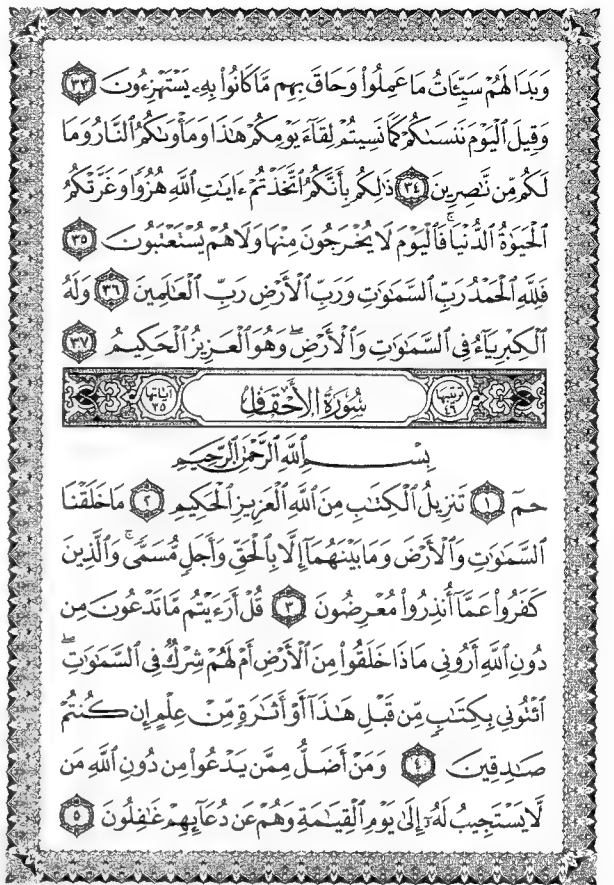 وَبَدَا لَهُمْ سَيِّـَٔاتُ مَا عَمِلُوا۟ وَحَاقَ بِهِم مَّا كَانُوا۟ بِهِۦ يَسْتَهْزِءُونَ ٣٣
وَقِيلَ ٱلْيَوْمَ نَنسَىٰكُمْ كَمَا نَسِيتُمْ لِقَآءَ يَوْمِكُمْ هَـٰذَا وَمَأْوَىٰكُمُ ٱلنَّارُ وَمَا
لَكُم مِّن نَّـٰصِرِينَ ٣٤ ذَٰلِكُم بِأَنَّكُمُ ٱتَّخَذْتُمْ ءَايَـٰتِ ٱللَّهِ هُزُوًا وَغَرَّتْكُمُ
ٱلْحَيَوٰةُ ٱلدُّنْيَا ۚ فَٱلْيَوْمَ لَا يُخْرَجُونَ مِنْهَا وَلَا هُمْ يُسْتَعْتَبُونَ ٣٥
فَلِلَّهِ ٱلْحَمْدُ رَبِّ ٱلسَّمَـٰوَٰتِ وَرَبِّ ٱلْأَرْضِ رَبِّ ٱلْعَـٰلَمِينَ ٣٦ وَلَهُ
ٱلْكِبْرِيَآءُ فِى ٱلسَّمَـٰوَٰتِ وَٱلْأَرْضِ ۖ وَهُوَ ٱلْعَزِيزُ ٱلْحَكِيمُ ٣٧
ترتيبها ٤٦ سُورَةُ ٱلْأَحْقَافِ آياتها ٣٥
بِسْمِ ٱللَّهِ ٱلرَّحْمَـٰنِ ٱلرَّحِيمِ
حمٓ ١ تَنزِيلُ ٱلْكِتَـٰبِ مِنَ ٱللَّهِ ٱلْعَزِيزِ ٱلْحَكِيمِ ٢ مَا خَلَقْنَا
ٱلسَّمَـٰوَٰتِ وَٱلْأَرْضَ وَمَا بَيْنَهُمَآ إِلَّا بِٱلْحَقِّ وَأَجَلٍ مُّسَمًّى ۚ وَٱلَّذِينَ
كَفَرُوا۟ عَمَّآ أُنذِرُوا۟ مُعْرِضُونَ ٣ قُلْ أَرَءَيْتُم مَّا تَدْعُونَ مِن
دُونِ ٱللَّهِ أَرُونِى مَاذَا خَلَقُوا۟ مِنَ ٱلْأَرْضِ أَمْ لَهُمْ شِرْكٌ فِى ٱلسَّمَـٰوَٰتِ ۖ
ٱئْتُونِى بِكِتَـٰبٍ مِّن قَبْلِ هَـٰذَآ أَوْ أَثَـٰرَةٍ مِّنْ عِلْمٍ إِن كُنتُمْ
صَـٰدِقِينَ ٤ وَمَنْ أَضَلُّ مِمَّن يَدْعُوا۟ مِن دُونِ ٱللَّهِ مَن
لَّا يَسْتَجِيبُ لَهُۥٓ إِلَىٰ يَوْمِ ٱلْقِيَـٰمَةِ وَهُمْ عَن دُعَآئِهِمْ غَـٰفِلُونَ ٥